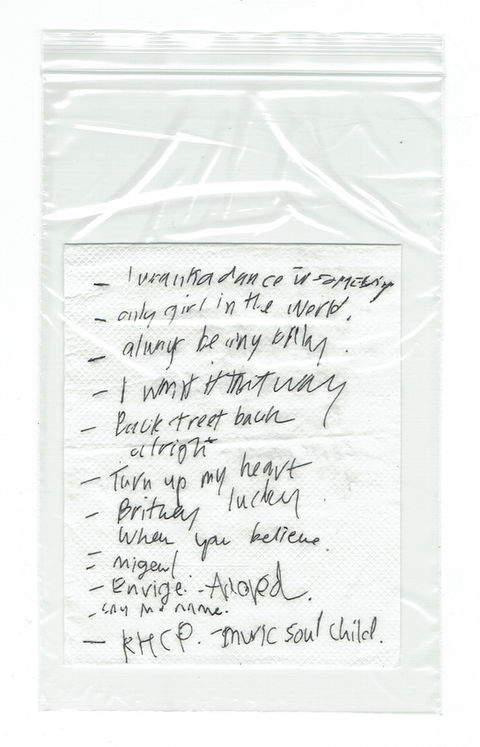 - I wanna dance w somebody
- only girl in the world.
- always be my baby.
- I want it that way
- Backstreet back
alright
- Turn up my heart
- Britney lucky
When you believe.
- migeul
- Envige. -
- say my name.
- RHCP. - music soul child.